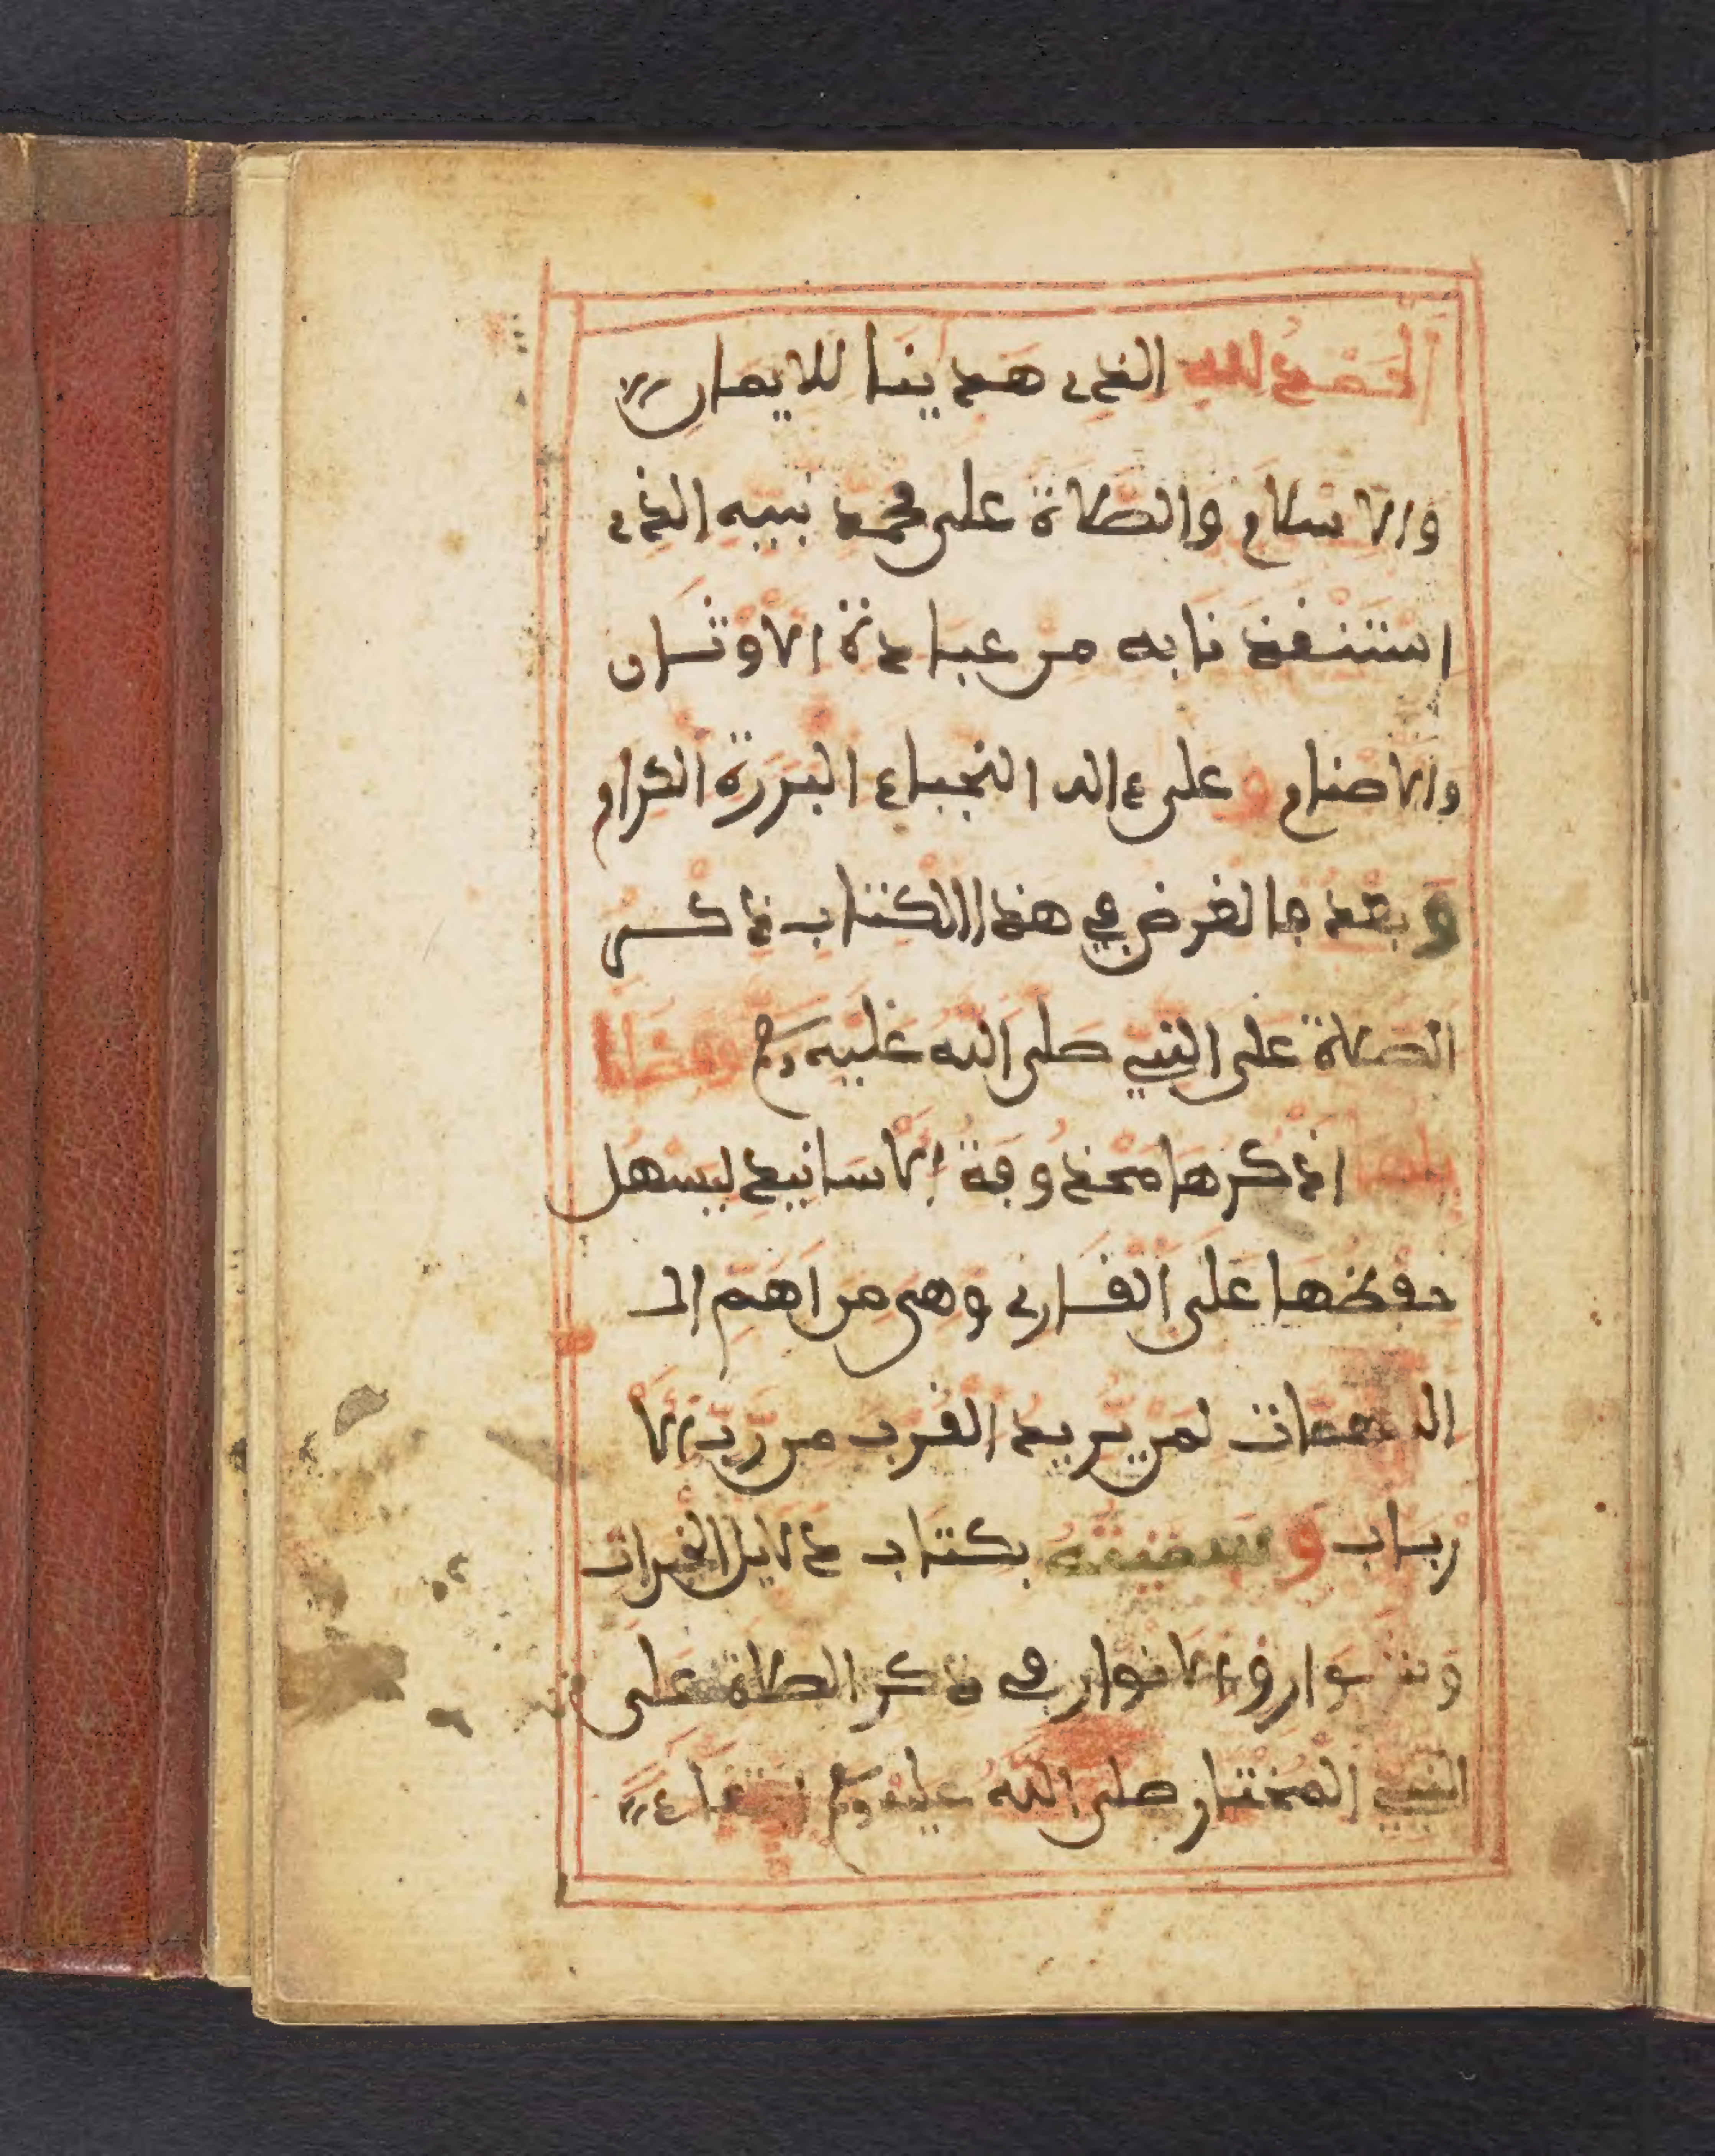 الحمد لله الذي هدينا للايمان
والاسلام والصلاة على محمد نبيه الذي
استنقذنا به من عبادة الاوثان
والاصنام و على ءاله النجباء البررة الكرام
و بعد فالغرض في هذا الكتاب ذكر
الصلاة على النبي صلى الله عليه وسلم وفضا
يلها اذكرها محذوفة الاسانيد ليسهل
حفظها على القارئ وهي من اهم ال
المهمات لمن يريد القرب من رب الا
رباب و سميته بكتاب دلايل الخيرات
و شوارق الانوار في ذكر الصلاة على
النبي المختار صلى الله عليه وسلم ابتغاء